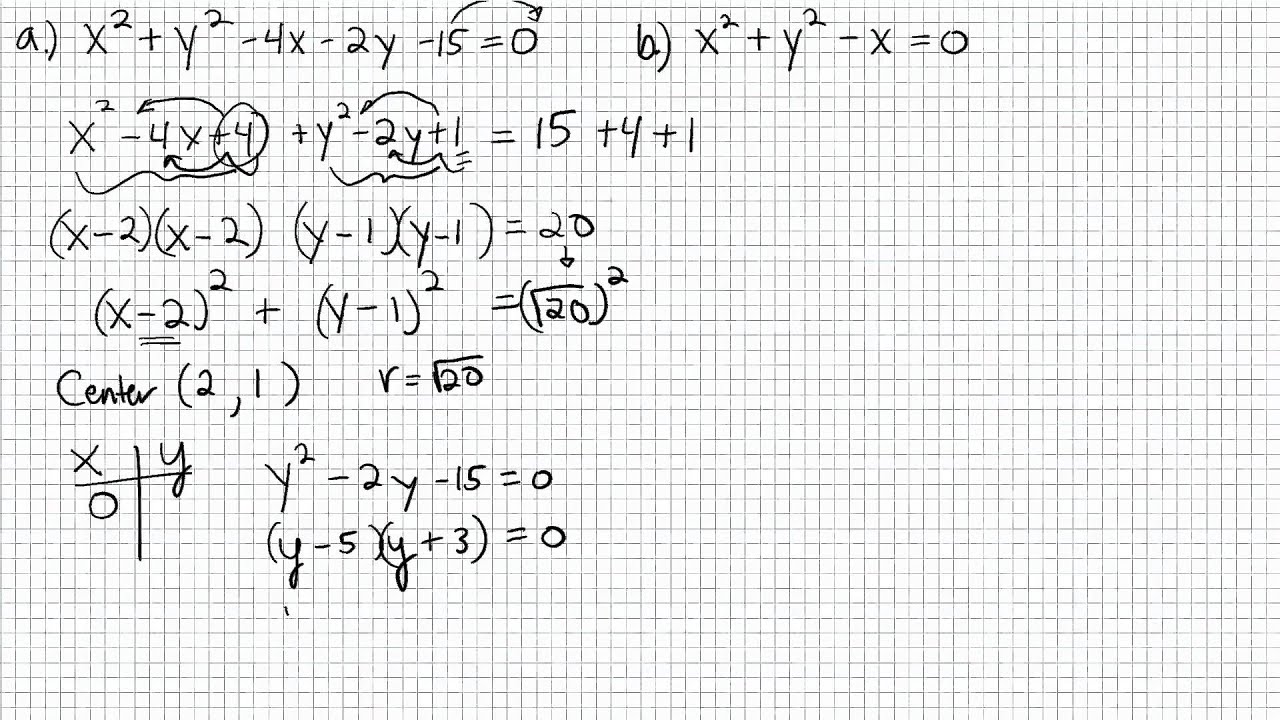 a.) x² + y² - 4x - 2y - 15 = 0
b.) x² + y² - x = 0
x² - 4x + 4 + y² - 2y + 1 = 15 + 4 + 1
(x - 2)(x - 2) (y - 1)(y - 1) = 20
(x - 2)² + (y - 1)² = (√20)²
Center (2, 1) r = √20
x | y
0
y² - 2y - 15 = 0
(y - 5)(y + 3) = 0